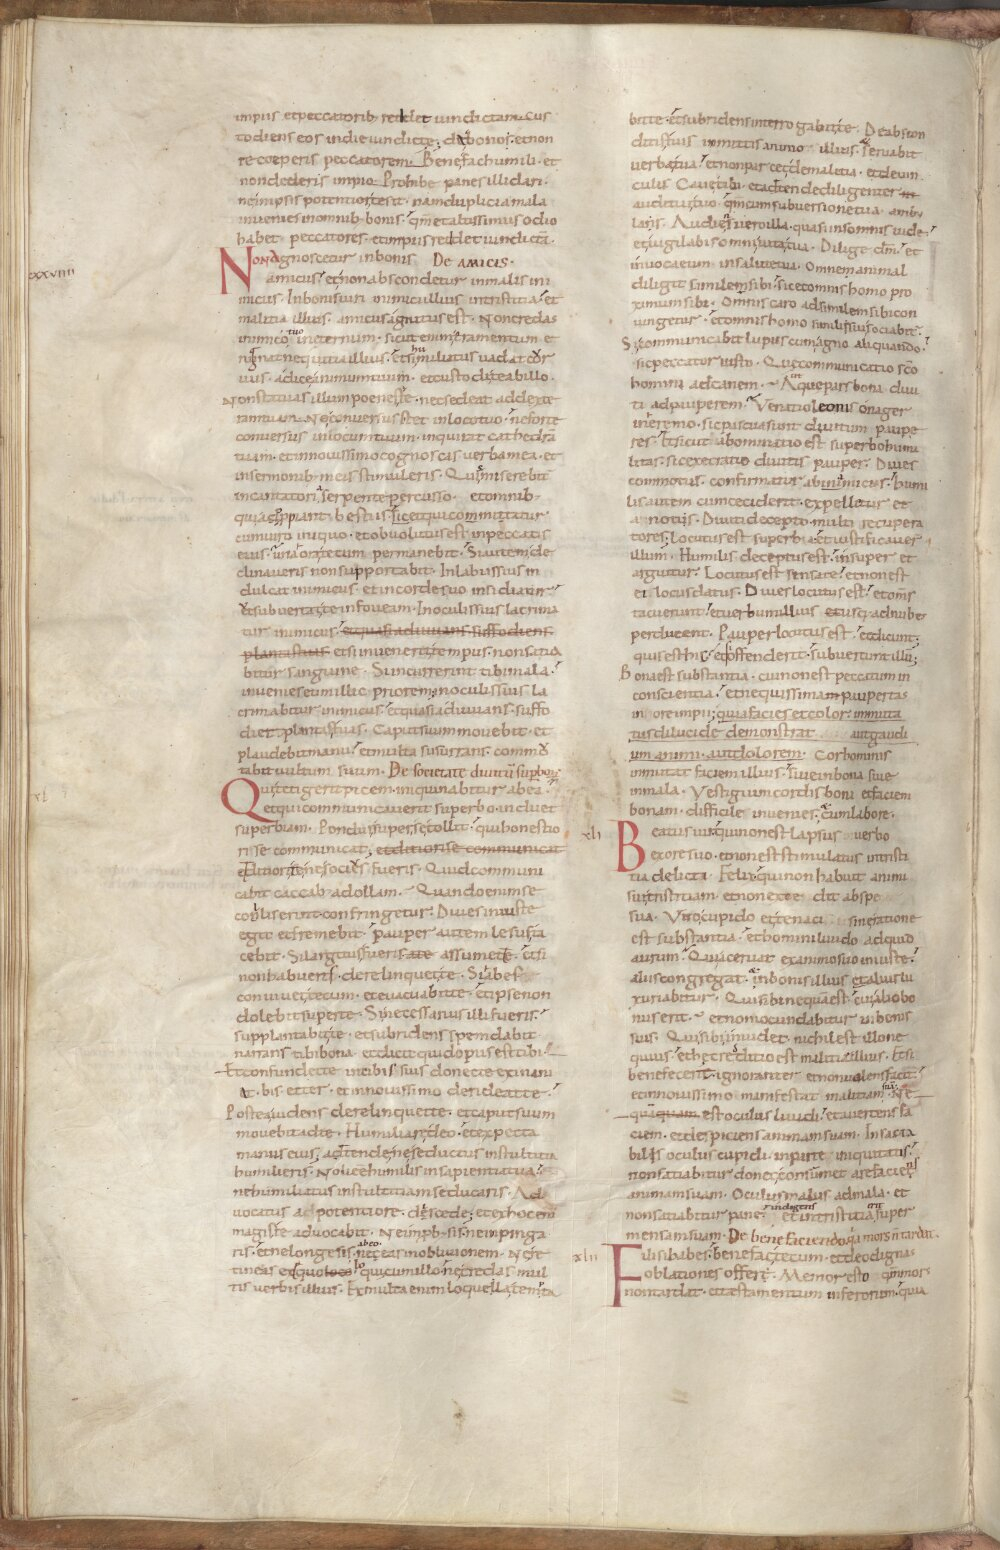 impiis et peccatorib; reddet vindictam cus
todiens eos in die vindicte; da bono; et non
receperis peccatorem. Benefac humili. et
non dederis impio. Prohibe panes illi dari.
ne in ipsis potentior te sit. nam duplicia mala
invenies in omnib; bonis. qm et altissimus odio
habet peccatores. et impiis reddet vindictā.
xxxviiii
Non agnoscetur in bonis De amicis.
amicus. et non abscondetur in malis ini
micus. In bonis viri inimici illius in tristitia. et
malitia illius. amicus agnitus est. Non credas
inimico tuo in eternum. sicut enim eramentum et
rūginat nequitia illius. et si humiliatus vadat cur
vus. adice animum tuum. et custodi te ab illo.
Non statuas illum poenes te. nec sedeat ad dexte
ram tuam. Ne conversus stet in loco tuo. ne forte
conversus in locum tuum. inquirat cathedrā
tuam. et in novissimo cognoscas verba mea. et
in sermonib; meis stimuleris. Quis miserebit
incantatori a serpente percusso. et omnib;
qui appropiant bestiis. sic et qui comittatur
cum viro iniquo. et obvolutus est in peccatis
eius. una ora tecum permanebit. Si autem de
clinaveris non supportabit. In labiis suis in
dulcat inimicus. et in corde suo insidiatur.
ut subvertat te in foveam. In oculis suis lacrima
tur inimicus. et quasi adiuvans suffodiens
plantas tuas et si invenerit tempus. non satia
bitur sanguine. Si incurrerint tibi mala.
invenies eum illic priorem. in oculis suis la
crimabitur inimicus. et quasi adiuvans. suffo
diet plantas tuas. Caput suum movebit. et
plaudebit manu. et multa susurrans. commu
tabit vultum suum. De societate divitū superbor;
xl
Qui tetigerit picem. inquinabitur ab ea.
et qui communicaverit superbo. induet
superbiam. Pondus super se tollit. qui honestio
ri se communicat; et ditiori se communicat
et ditiori te ne socius fueris. Quid communi
cabit caccab; ad ollam. Quando enim se
colliserint. confringetur. Dives iniuste
egit et fremebit. pauper autem lesus ta
cebit. Si largitus fueris assumet te. et si
non habueris. derelinquet te. Si habes
convivet tecum. et evacuabit te. et ipse non
dolebit super te. Si necessarius illi fueris.
supplantabit te. et subridens spem dabit
narrans tibi bona. et dicit quid opus est tibi.
Et confundet te in cibis suis donec te exinani
at. bis et ter. et in novissimo derideat te.
Postea videns derelinquet te. et caput suum
movebit ad te. Humiliare deo. et expecta
manus eius; adtende ne seductus in stultitia
humilieris. Noli ee humilis in sapientia tua.
ne humiliatus in stultitiam seducaris. Ad
vocatus a potentiore. discede; ex hoc enī
magis te advocabit. Ne improb; sis. ne impinga
ris. et ne longe sis ab eo. ne eas in oblivionem. Ne re
tineas ex equo loqui cum illo. nec credas mul
tis verbis illius. Ex multa enim loquella temta
bit te. et subridens interrogabit te. De abscon
ditis tuis inmitis animo illius. servabit
verba tua. et non parcet de malitia. et de vin
culis. Cave tibi. et adtende diligenter
auditui tuo. qm cum subversione tua. amb;
laris. Audiens vero illa. quasi in somnis vide.
et vigilabis omni vita tua. Dilige dm. et
invoca eum in salute tua. Omne animal
diligit simile sibi. sic et omnis homo pro
ximum sibi. Omnis caro ad similem sibi con
iungetur. et omnis homo simili sui sociabit.
Si communicabit lupus cum agno aliquando.
sic peccator iusto. Que communicatio sco
homini ad canem. Aut que pars bona divi
ti ad pauperem. Venatio leonis onager
in eremo. sic pascua sunt divitum paupe
res. Et sicut abominatio est superbo humi
litas. sic execratio divitis pauper. Dives
commotus. confirmatur ab inimicis. humi
lis autem cum ceciderit. expelletur et
a notis. Diviti decepto multi recupera
tores. locutus est superbia. et iustificaver
illum. Humilis deceptus est. insuper et
arguitur. Locutus est sensate. et non est
ei locus datus. Dives locutus est. et oms
tacuerunt. et verbum illius et usq; ad nubes
perducent. Pauper locutus est. et dicunt.
quis est hic. et si offenderit. subvertunt illū;
Bona est substantia. cui non est peccatum in
conscientia. et nequissima paupertas
in ore impii; quia facies et color inmuta
tus dilucide demonstrat aut gaudi
um animi. aut dolorem. Cor hominis
inmutat faciem illius. sive in bona sive
in mala. Vestigium cordis boni et faciem
bonam. difficile invenies. cum labore.
xli
Beatus vir qui non est lapsus verbo
ex ore suo. et non est stimulatus in tristi
tia delicti. Felix qui non habuit animi
sui tristitiam. et non excidit ab spe
sua. Viro cupido et tenaci sine ratione
est substantia. et homini livido ad quid
aurum. Qui acervat ex animo suo iniuste.
aliis congregat. et in bonis illius et alius lu
xuriabitur. Qui sibi nequā est. cui alio bo
nus erit. et non iocundabitur in bonis
suis. Qui sibi invidet. nichil est illo ne
quius. et hec redditio est malitie illius. Et si
benefecerit. ignoranter et non volens facit.
et in novissimo manifestat malitiam suā. Ne
quam est oculus lividi. et avertens fa
ciem. et despiciens animam suam. Insatia
bilis oculus cupidi. in parte iniquitatis.
non satiabitur donec consumet arefaciens
animam suam. Oculus malus ad mala. et
non satiabitur pane. indigens et in tristitia erit super
mensam suam. De bene faciendo. qa mors n tardat.
xlii
Fili si habes. benefac tecum. et deo dignas
oblationes offer. Memor esto qm mors
non tardat. et testamentum inferorum. quia